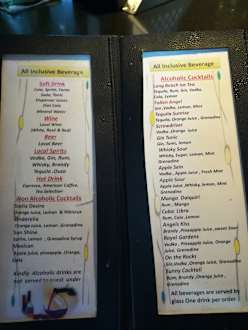 All Inclusive Beverage
Soft Drink
Coke, Sprite, Fanta
Soda, Tonic
Diet Coke
Mineral Water
Wine
Local Wine
(White, Rosé & Red)
Beer
Local Beer
Local Spirits
Vodka, Gin, Rum,
Whisky, Brandy
Tequila ,Ouzo
Hot Drink
American Coffee,
Tea Selection
Non Alcoholic Cocktails
Desire
Orange Juice, Lemon & Hibiscus
Cinderella
Orange Juice, Lemon ,Grenadine
Sun Shine
Lemon , Grenadine Syrup
Mexican
Apple Juice, pineapple ,Orange,
Kindly Alcoholic drinks are
not served to guest under
All Inclusive Beverage
Alcoholic Cocktails
Long Island Ice Tea
Tequila, Rum, Gin, Vodka,
Cola, Lemon
Fallen Angel
Gin ,Vodka, Lemon, Mint
Tequila Sunrise
Tequila, Orange Juice , Grenadine
Screwdriver
Vodka ,Orange Juice
Gin Tonic
Gin, Tonic, Lemon
Whisky Sour
Whisky, Sugar, Lemon, Mint
Grenadine
Apple Satin
Vodka , Apple Juice , Fresh Mint
Apple Sour
Apple Juice ,Whisky, Lemon, Mint
Grenadine
Mango Daiquiri
Rum , Mango
Cuba Libra
Rum, Cola, Lemon
Angels Kiss
Brandy ,Pineapple Juice , sweet Sour
Royal Gardens
Vodka , Pineapple Juice, Orange
Juice, Grenadine
On the Rocks
Gin,Vodka ,Orange Juice , Grenadine
Sunny Cocktail
Rum, Brandy ,Orange Juice ,
Grenadine
All beverages are served by
glass One drink per order